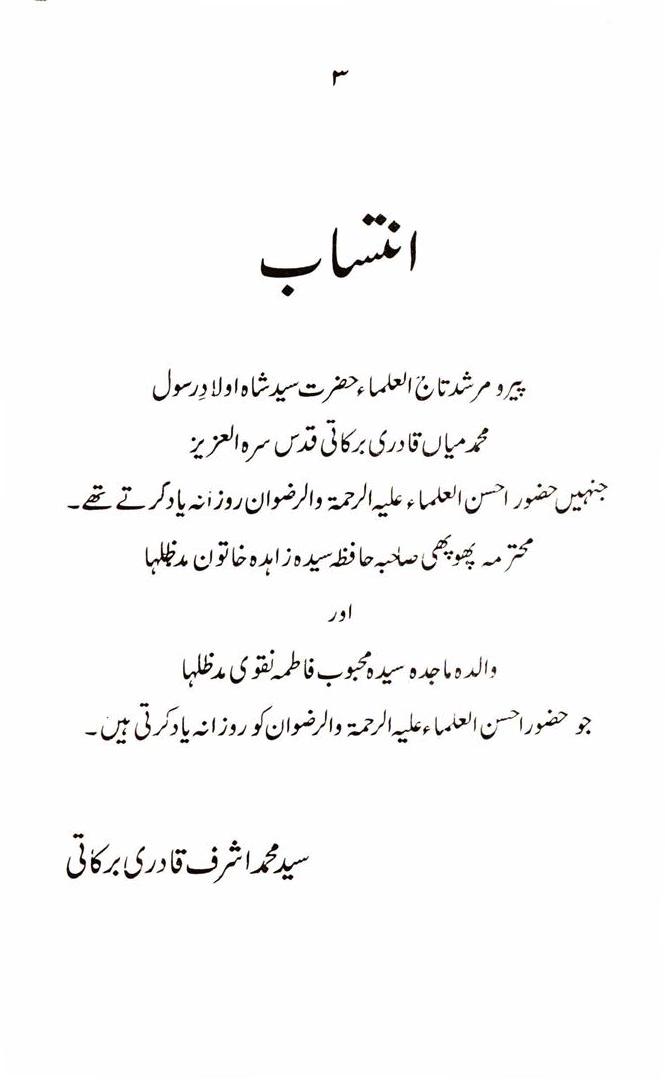 ۳
انتساب
پیر و مرشد تاج العلماء حضرت سید شاہ اولادِ رسول
محمد میاں قادری برکاتی قدس سرہ العزیز
جنہیں حضور احسن العلماء علیہ الرحمۃ والرضوان روزانہ یاد کرتے تھے۔
محترمہ پھوپھی صاحبہ حافظہ سیدہ زاہدہ خاتون مدظلہا
اور
والدہ ماجدہ سیدہ محبوب فاطمہ نقوی مدظلہا
جو حضور احسن العلماء علیہ الرحمۃ والرضوان کو روزانہ یاد کرتی ہیں۔
سید محمد اشرف قادری برکاتی